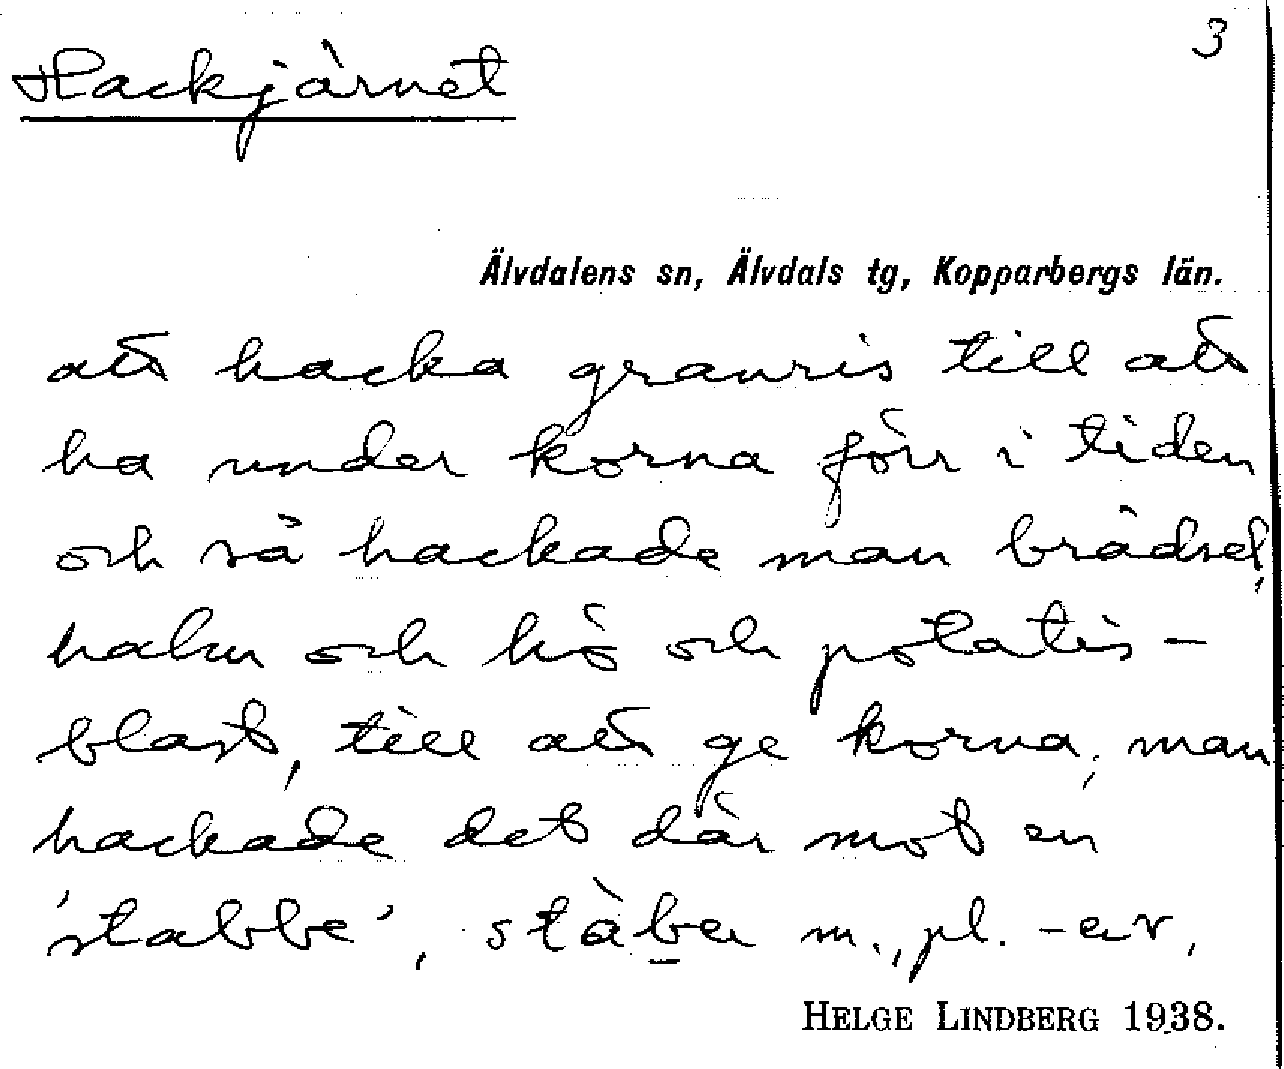 3
Hackjärnet
Älvdalens sn, Älvdals tg, Kopparbergs län.
att hacka granris till att
ha under korna förr i tiden
och så hackade man brådsel,
halm och hö och potatis-
blast, till att ge korna, man
hackade det där mot en
'stabbe', m., pl. -er,
HELGE LINDBERG 1938.